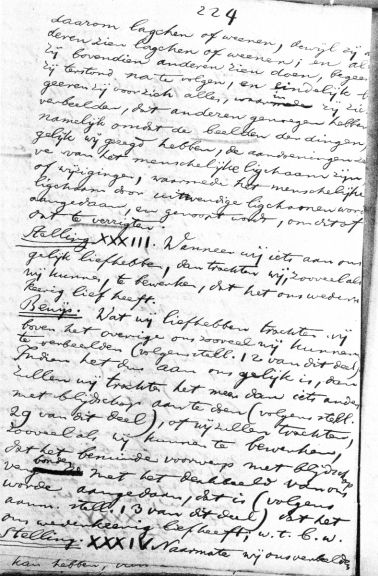 224
daarom lagchen of weenen, dewijl zij
deren zien lagchen of weenen; en al
zij bovendien anderen zien doen, begee
zij terstond na te volgen, en eindelijk
geeren zij voor zich alles, zij zi
verbeelden, dat anderen genoegen hebben
namelijk omdat de beelden der dingen,
gelijk wij gezegd hebben, de aandoeningen ze
ve van het menschelijke ligchaam zijn
of wijzigingen, waarmede het menschelijke
ligchaam door uitwendige ligchamen word
aangedaan, en genoopt wordt, om dit of
dat te verrigten.
Stelling XXXIII. Wanneer wij iets aan ons
gelijk liefhebben, dan trachten wij, zooveel als
wij kunnen, te bewerken, dat het ons weder
keerig lief heeft.
Bewijs. Wat wij liefhebben trachten wij
boven het overige ons zooveel wij kunnen
te verbeelden (volgens stell. 12 van dit deel)
Indien het dus aan ons gelijk is, dan
zullen wij trachten het meer dan iets anders
met blijdschap aan te doen (volgens stell.
29 van dit deel), of wij zullen trachten,
zooveel als wij kunnen te bewerken,
dat het beminde voorwerp met blijdschap
ver met het denkbeeld van ons
worde aangedaan, dat is (volgens
aanm. stell. 13 van dit deel) dat het
ons wederkeerig liefheeft, w.t.b.w.
Stelling. XXXIV. Naarmate wij ons verbeelde
kan hebben,